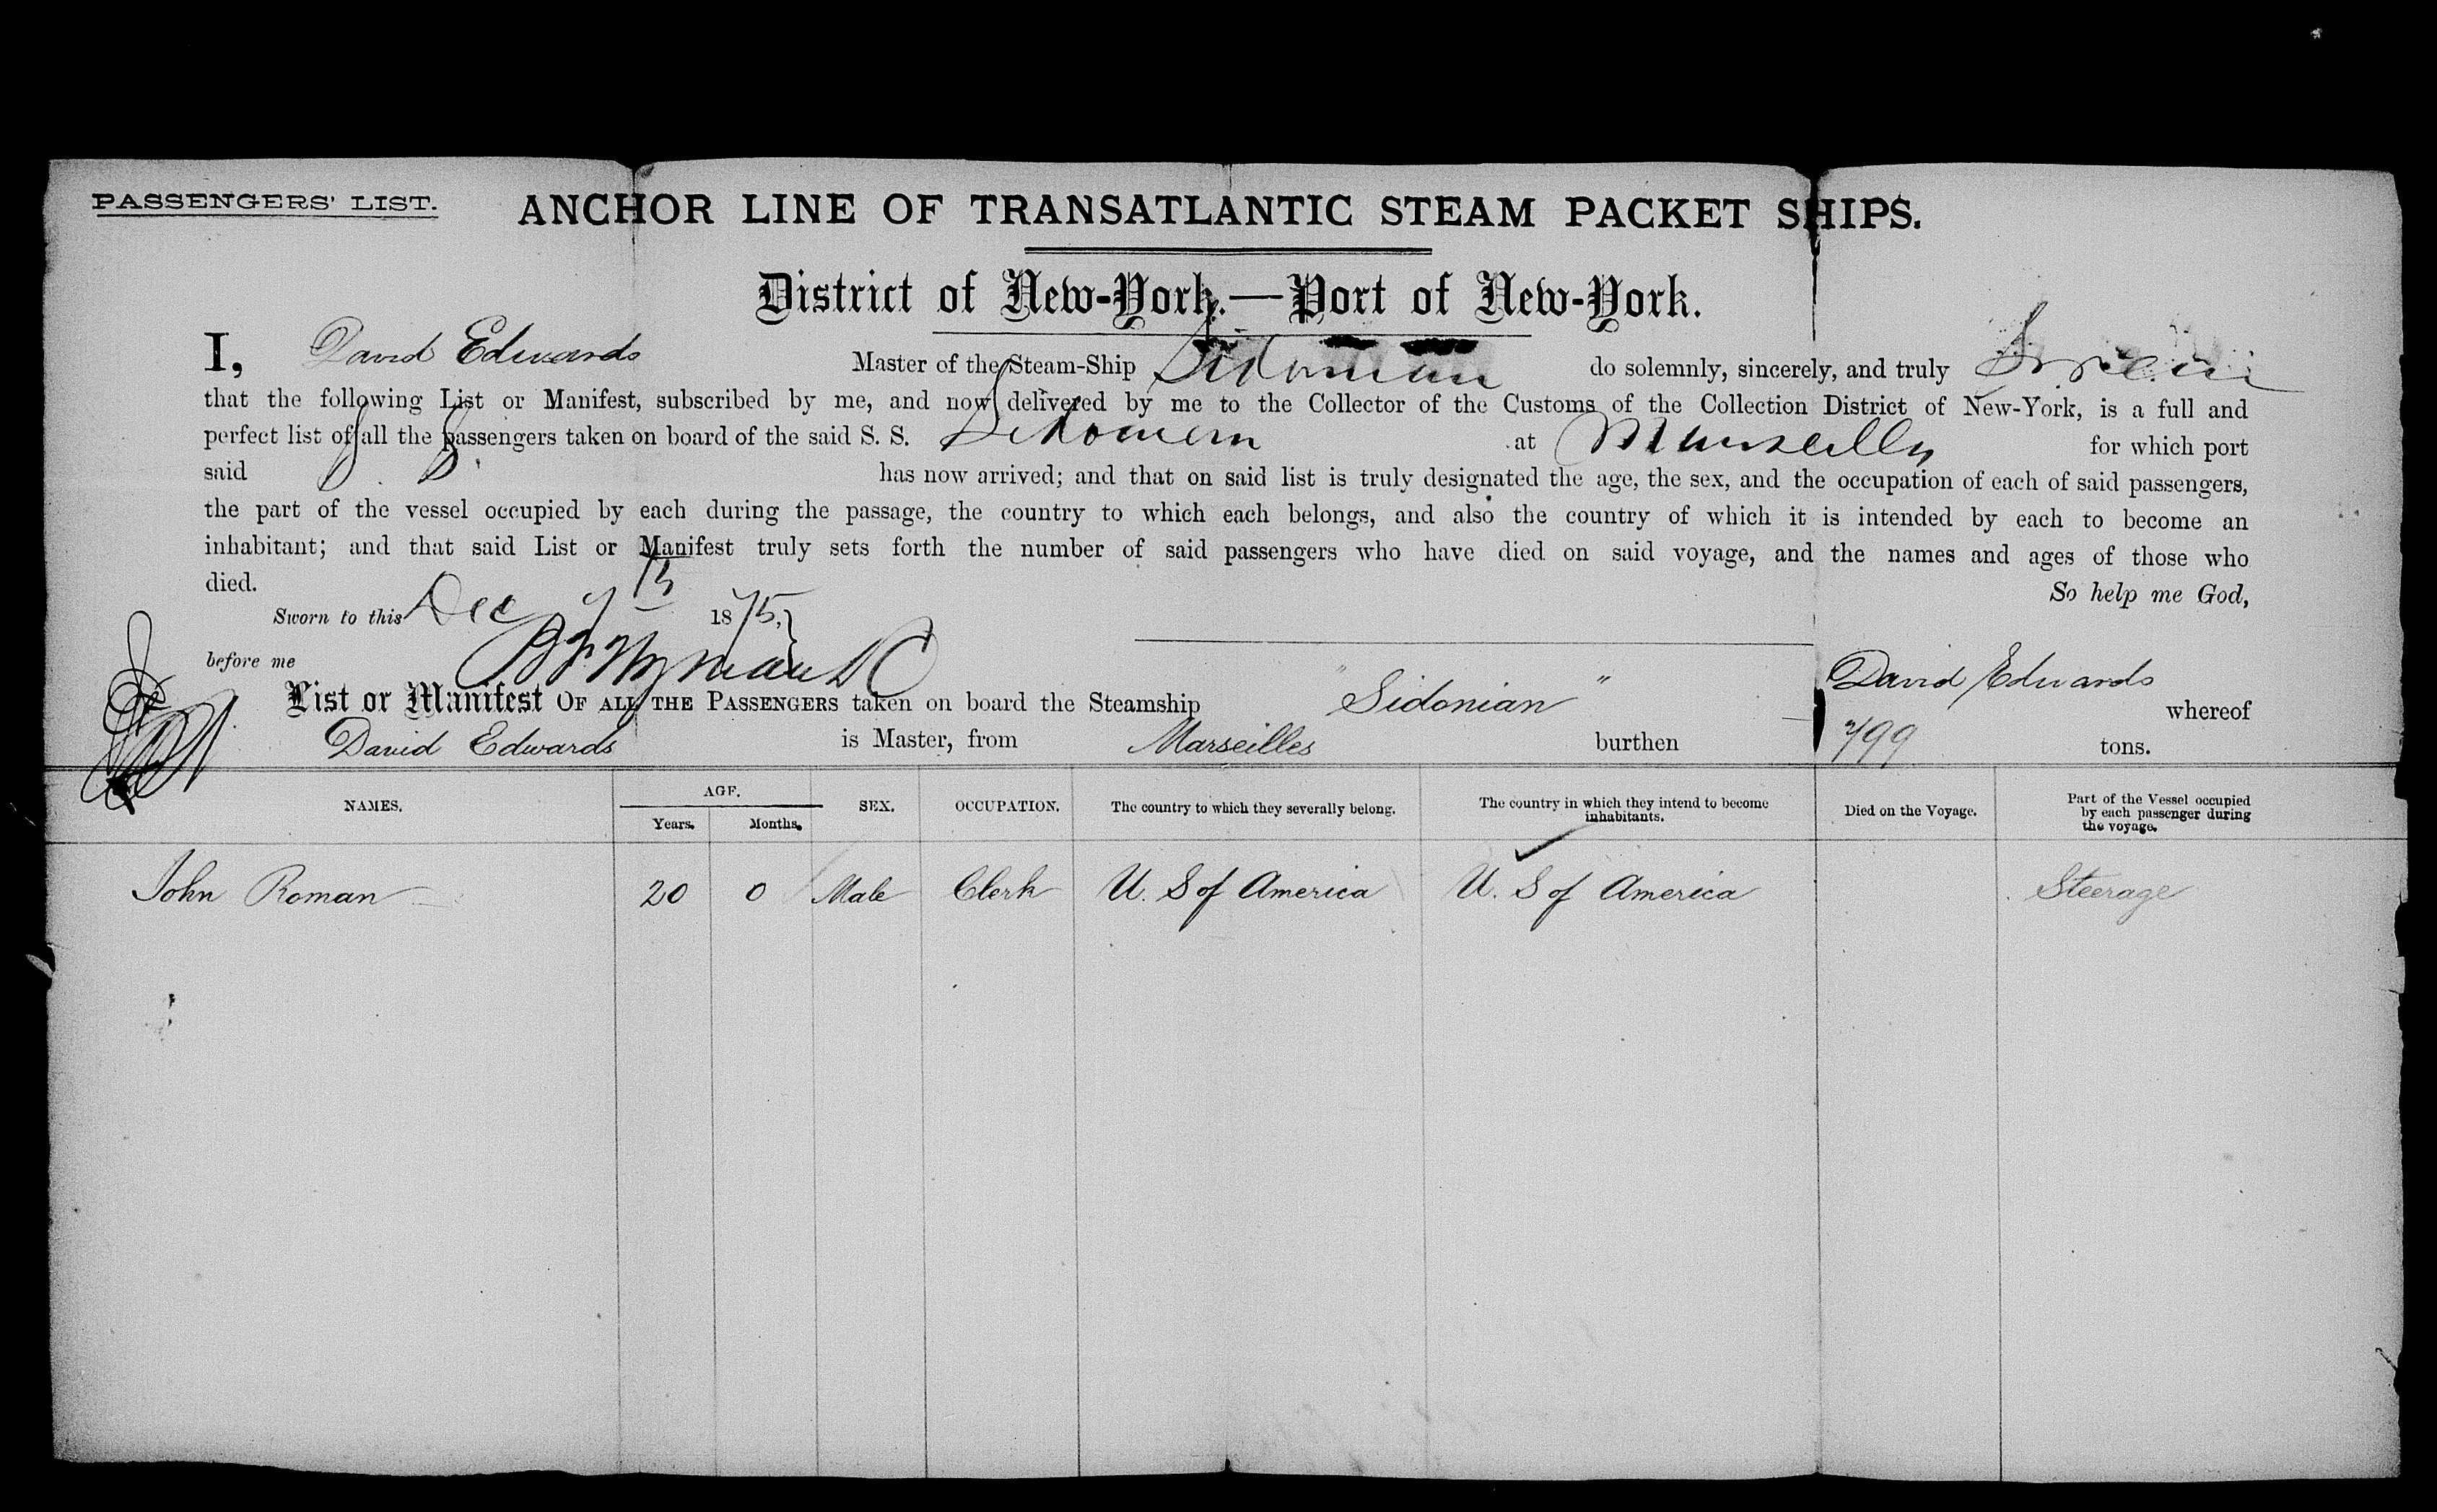 PASSENGERS' LIST. ANCHOR LINE OF TRANSATLANTIC STEAM PACKET SHIPS.
District of New-York.—Port of New-York.
I, David Edwards Master of the Steam-Ship Sidonian do solemnly, sincerely, and truly Swear
that the following List or Manifest, subscribed by me, and now delivered by me to the Collector of the Customs of the Collection District of New-York, is a full and
perfect list of all the passengers taken on board of the said S. S. Sidonian at Marseilles for which port
said S. S. has now arrived; and that on said list is truly designated the age, the sex, and the occupation of each of said passengers,
the part of the vessel occupied by each during the passage, the country to which each belongs, and also the country of which it is intended by each to become an
inhabitant; and that said List or Manifest truly sets forth the number of said passengers who have died on said voyage, and the names and ages of those who
died. So help me God,
Sworn to this Dec 7th 1875,
before me David Edwards
List or Manifest OF ALL THE PASSENGERS taken on board the Steamship "Sidonian" whereof
David Edwards is Master, from Marseilles burthen 799 tons.
NAMES. AGE. Years. Months. SEX. OCCUPATION. The country to which they severally belong. The country in which they intend to become inhabitants. Died on the Voyage. Part of the Vessel occupied by each passenger during the voyage.
John Roman 20 0 Male Clerk U. S of America U. S of America Steerage